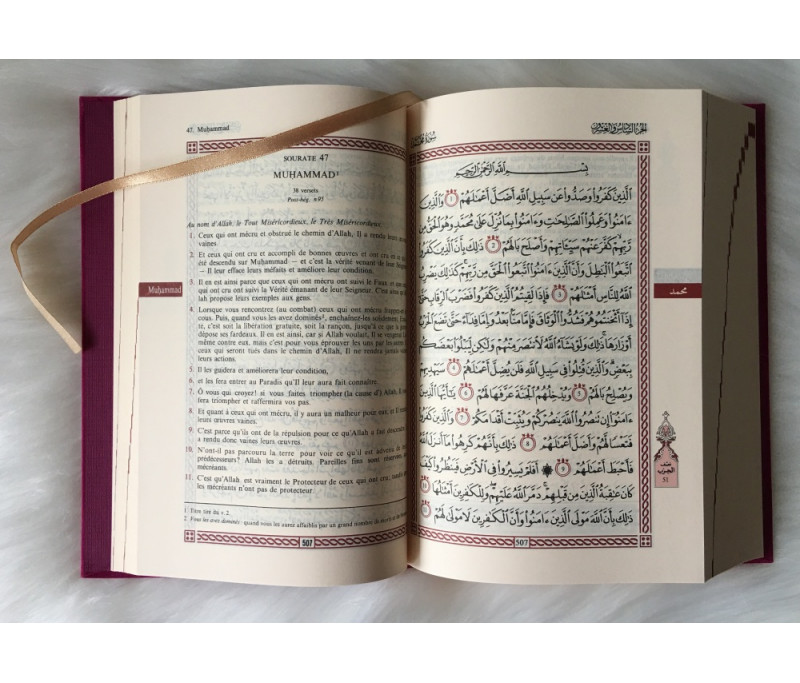 47. Muḥammad
SOURATE 47
MUḤAMMAD¹
38 versets
Post-hég. n°95
Au nom d'Allah, le Tout Miséricordieux, le Très Miséricordieux.
1. Ceux qui ont mécru et obstrué le chemin d'Allah, Il a rendu leurs œuvres
vaines.
2. Et ceux qui ont cru et accompli de bonnes œuvres et ont cru en ce qui a
été descendu sur Muḥammad — et c'est la vérité venant de leur Seigneur
— Il leur efface leurs méfaits et améliore leur condition.
3. Il en est ainsi parce que ceux qui ont mécru ont suivi le Faux et que ceux
qui ont cru ont suivi la Vérité émanant de leur Seigneur. C'est ainsi qu'Al-
lah propose leurs exemples aux gens.
4. Lorsque vous rencontrez (au combat) ceux qui ont mécru frappez-en les
cous. Puis, quand vous les avez dominés², enchaînez-les solidement. Ensuite,
c'est soit la libération gratuite, soit la rançon, jusqu'à ce que la guerre
dépose ses fardeaux. Il en est ainsi, car si Allah voulait, Il se vengerait Lui-
même contre eux, mais c'est pour vous éprouver les uns par les autres. Et
ceux qui seront tués dans le chemin d'Allah, Il ne rendra jamais vaines
leurs actions.
5. Il les guidera et améliorera leur condition,
6. et les fera entrer au Paradis qu'Il leur aura fait connaître.
7. Ô vous qui croyez! si vous faites triompher (la cause d') Allah, Il vous
fera triompher et raffermira vos pas.
8. Et quant à ceux qui ont mécru, il y aura un malheur pour eux, et Il a rendu
leurs œuvres vaines.
9. C'est parce qu'ils ont de la répulsion pour ce qu'Allah a fait descendre. Il
a rendu donc vaines leurs œuvres.
10. N'ont-il pas parcouru la terre pour voir ce qu'il est advenu de leurs
prédécesseurs? Allah les a détruits. Pareilles fins sont réservées aux
mécréants.
11. C'est qu'Allah est vraiment le Protecteur de ceux qui ont cru; tandis que
les mécréants n'ont pas de protecteur.
1 Titre tiré du v.2.
2 Vous les avez dominés: quand vous les aurez affaiblis par un grand nombre de
507
Muḥammad
الجزء السادس والعشرون
بسم الله الرحمن الرحيم
الذين كفروا وصدوا عن سبيل الله أضل أعملهم ١ والذين
ءامنوا وعملوا الصلحت وءامنوا بما نزل على محمد وهو الحق من
ربهم كفر عنهم سيـاتهم وأصلح بالهم ٢ ذلك بأن الذين كفروا
اتبعوا البطل وأن الذين ءامنوا اتبعوا الحق من ربهم كذلك يضرب
الله للناس أمثلهم ٣ فإذا لقيتم الذين كفروا فضرب الرقاب حتى
إذا أثخنتموهم فشدوا الوثاق فإما منا بعد وإما فداء حتى تضع الحرب
أوزارها ذلك ولو يشاء الله لانتصر منهم ولكن ليبلوا بعضكم
ببعض والذين قتلوا في سبيل الله فلن يضل أعملهم ٤ سيهديهم
ويصلح بالهم ٥ ويدخلهم الجنة عرفها لهم ٦ يأيها الذين
ءامنوا إن تنصروا الله ينصركم ويثبت أقدامكم ٧ والذين كفروا
فتعسا لهم وأضل أعملهم ٨ ذلك بأنهم كرهوا ما أنزل الله
فأحبط أعملهم ٩ أفلم يسيروا في الأرض فينظروا كيف
كان عقبة الذين من قبلهم دمر الله عليهم وللكفرين أمثلها ١٠
ذلك بأن الله مولى الذين ءامنوا وأن الكفرين لا مولى لهم ١١
507
محمد
نصف
الحزب
51